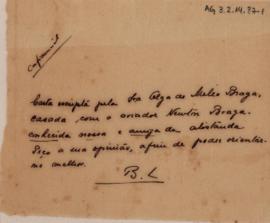 AG 3.2.14.??-1
Confidencial
Carta escripta pela Sra Olga de Mello Braga,
casada com o aviador Newton Braga.
conhecida nossa e amiga da
Peço a sua opinião, afim de poder orientar-
me melhor.
B. L